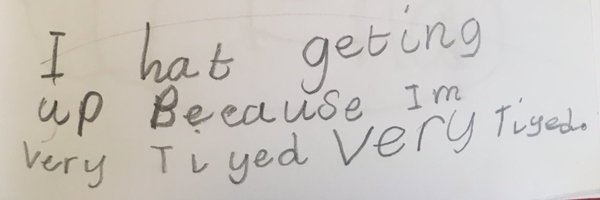 I hat geting
up Because Im
Very Tiyed Very Tiyed.